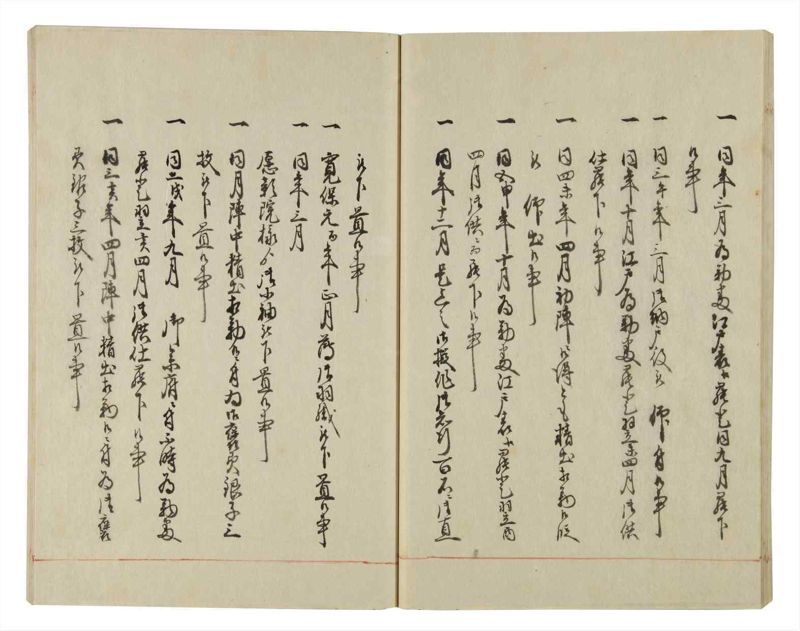 一 同年三月為勤番江戸表江罷越同九月罷下
候事
一 同三午年三月御納戸役被 仰付候事
一 同年十月江戸為勤番罷越翌 四月御供
仕罷下候事
一 同四未年四月初陣 精出相勤候段
被 仰出候事
一 同五申年十月為勤番江戸表江罷越翌酉
四月御供 罷下候事
一 同年十二月 御役 百石 御直
被下置候事
一 寛保元酉年正月 御羽織被下置候事
一 同年三月
愿 院様より御小袖被下置候事
一 同月陣中精出相勤候ニ付為御褒美銀子三
枚被下置候事
一 同二戌年九月 御 府ニ付 時為勤番
罷越翌亥四月御供仕罷下候事
一 同三亥年四月陣中精出相勤候ニ付為御褒
美銀子三枚被下置候事